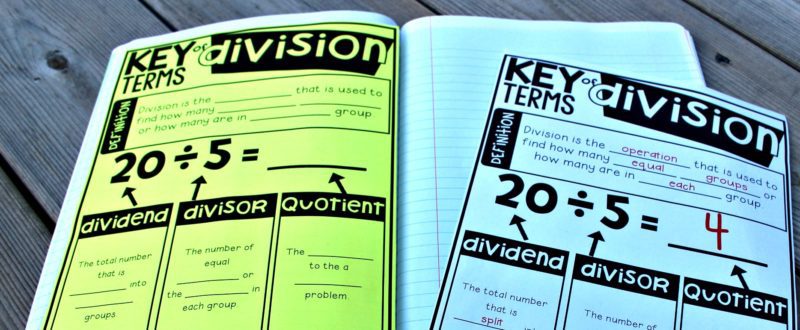 KEY of division
TERMS
DEFINITION
Division is the ____________ that is used to
find how many ________ ________ or
or how many are in ________ group.
20 ÷ 5 = ________
dividend divisor Quotient
The total number
that is
________ into
________
groups
The number of
equal
________ or
the ________ in
each group.
The ________
to the a
________
problem.
KEY of division
TERMS
DEFINITION
Division is the operation that is used to
find how many equal groups or
how many are in each group.
20 ÷ 5 = 4
dividend divisor Quotient
The total number
that is
split
The number of